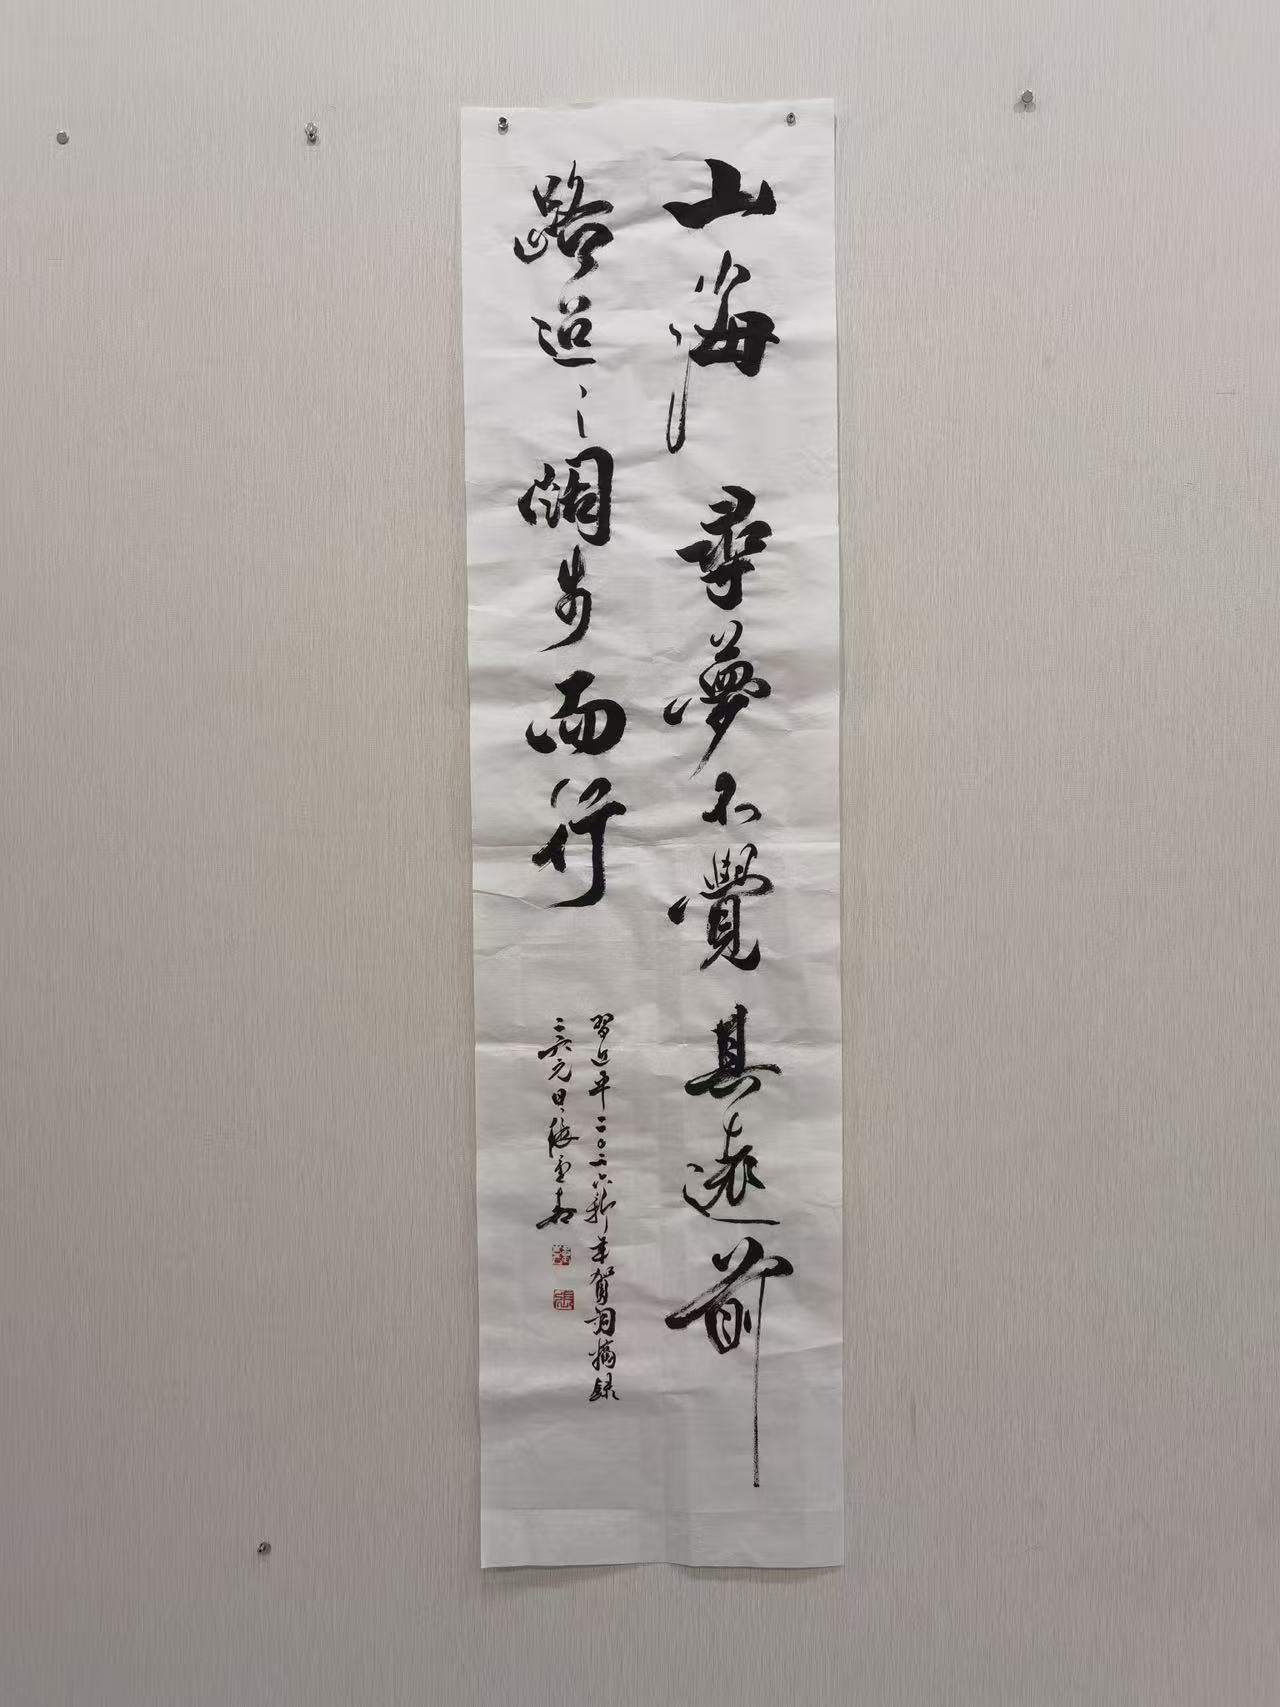 山海尋夢不覺其遠前
路迢迢闊步而行
習近平二〇二六新年賀詞摘録
二六元日
張